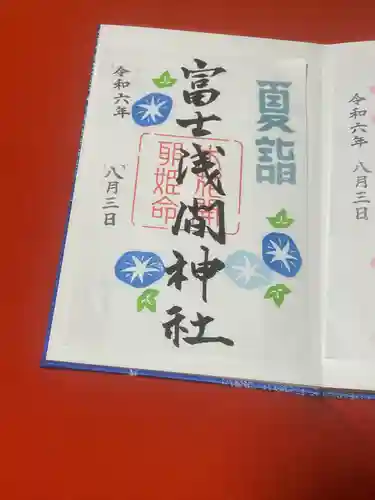 夏詣
富士浅間神社
木花開
耶姫命
令和六年
八月三日
令和六年
八月三日